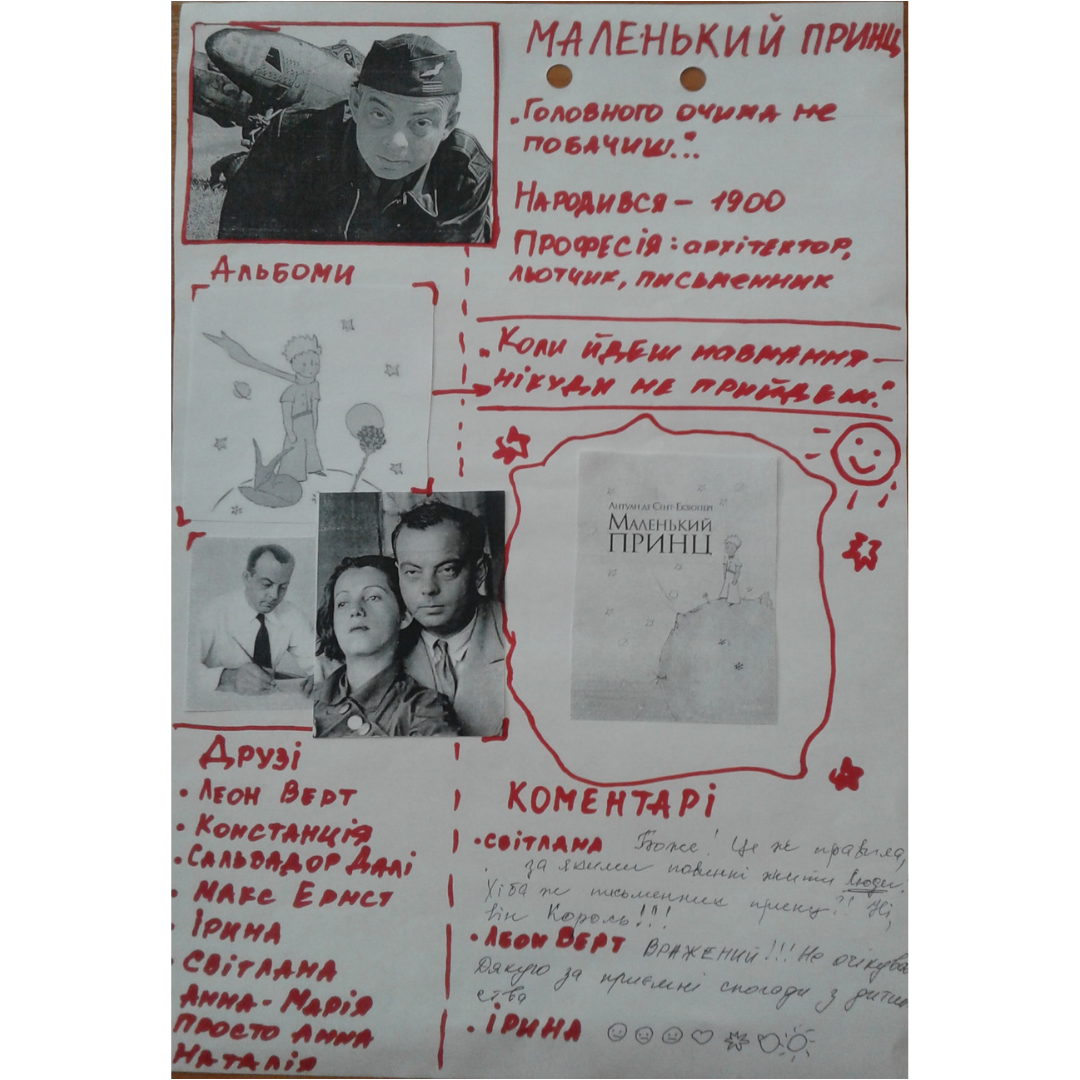 МАЛЕНЬКИЙ ПРИНЦ
„Головного очима не
побачиш..."
Народився – 1900
Професія: архітектор,
льотчик, письменник
Альбоми
„Коли йдеш навмання –
нікуди не прийдеш."
Антуан де Сент-Екзюпері
Маленький
ПРИНЦ
Друзі
• Леон Верт
• Констанція
• Сальвадор Далі
• Макс Ернст
• Ірина
• Світлана
Анна-Марія
Просто Анна
Наталія
КОМЕНТАРІ
• Світлана Боже! Це ж правила,
за якими повинні жити Люди.
Хіба ж письменник принц?! Ні,
він Король!!!
• Леон Верт ВРАЖЕНИЙ!!! Не очікував
Дякую за приємні спогади з дитин
ства
• Ірина